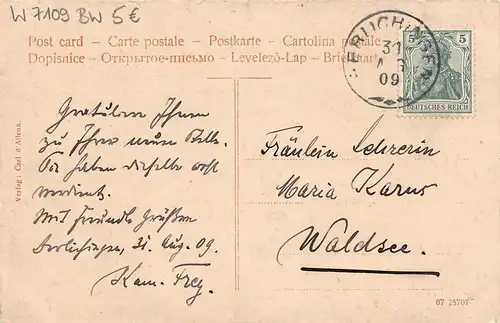 W7109 BW 5€
Post card – Carte postale – Postkarte – Cartolina postale
Dopisnice – Открытое письмо – Levelezö-Lap – Briefkaart
BERLICHINGEN
31
AUG
09
5 5
DEUTSCHES REICH
Gratuliere Ihnen
zu Ihrer neuen Stelle.
Sie haben dieselbe wohl
verdient.
Mit Freundl. Grüßen
Berlichingen, 31. Aug. 09.
Kam. Frey.
Fräulein Lehrerin
Maria Karus
Waldsee.
Verlag: Carl d'Alleux.
67 25707